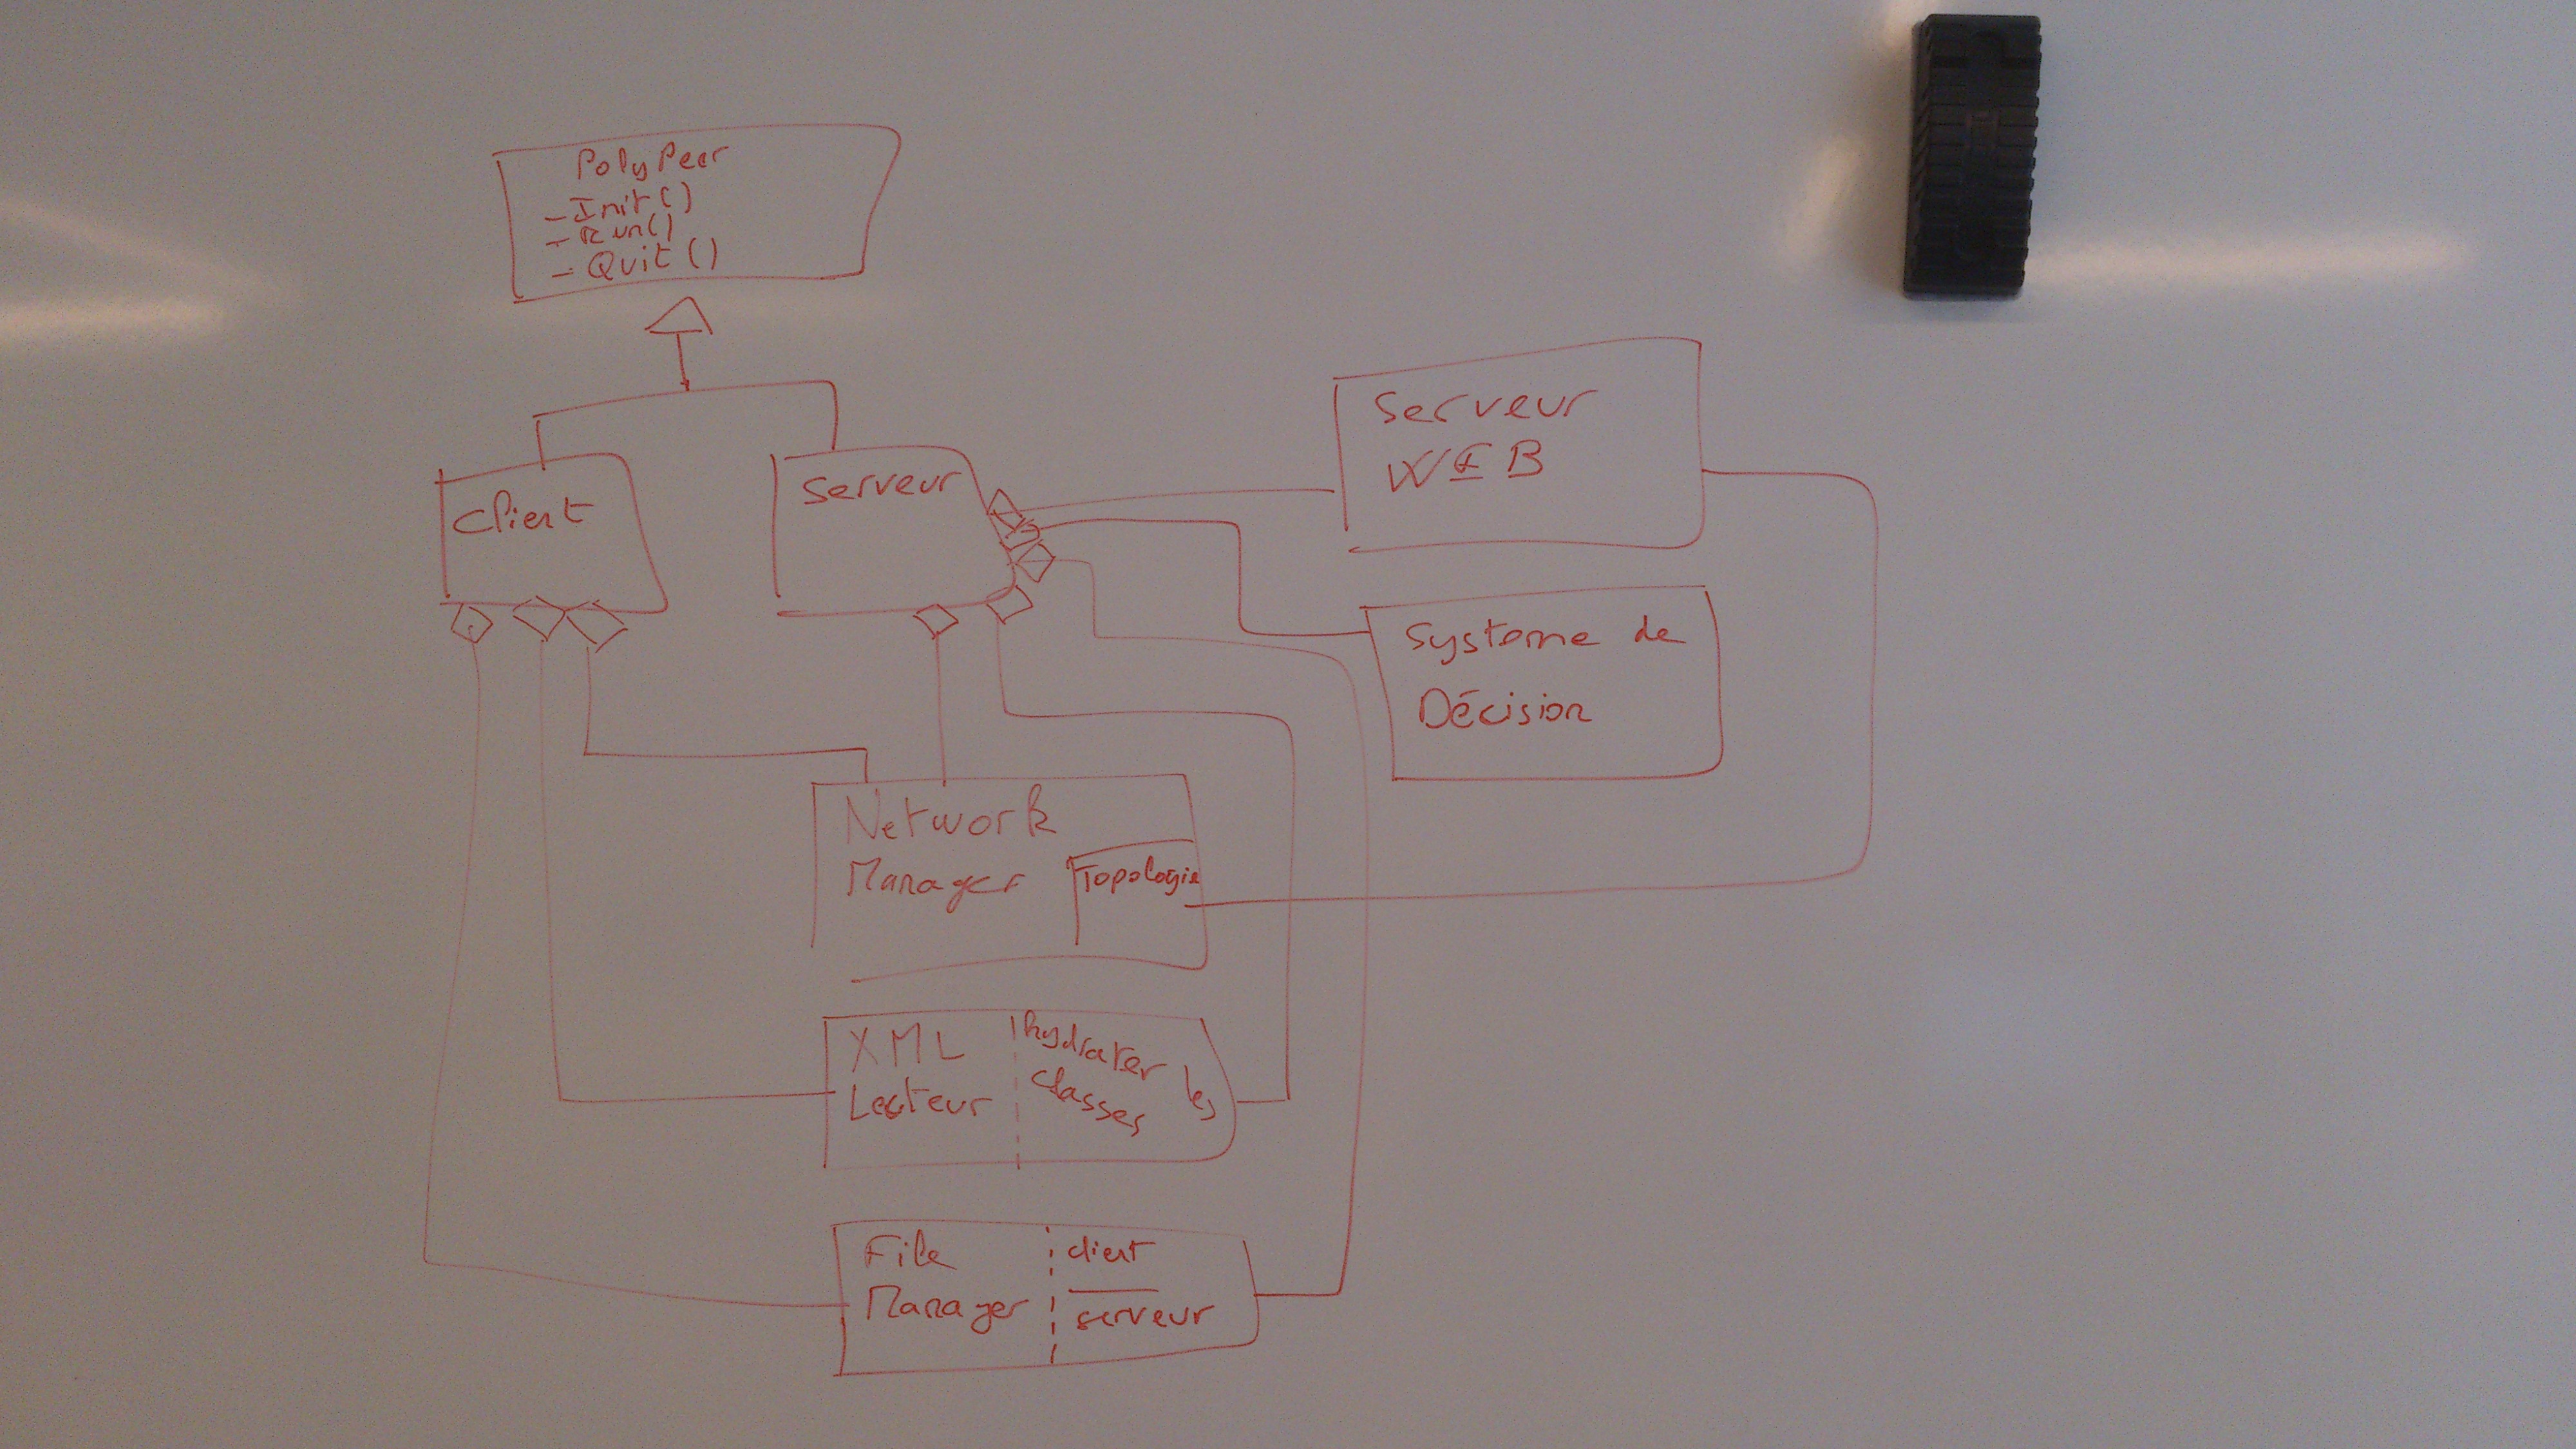 PolyPeer
- Init()
- Run()
- Quit()
Client
Serveur
Serveur
WEB
Systeme de
Décision
Network
Manager
Topologie
XML
Lecteur
hydrater les
classes
File
Manager
client
serveur